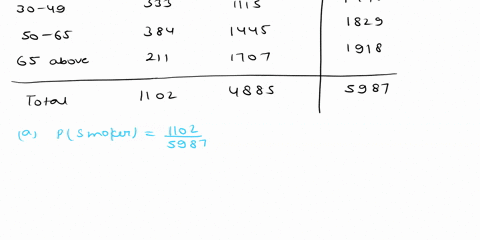 30-49 333 1115
50-65 384 1445 1829
65 above 211 1707 1918
Total 1102 4885 5987
(a) P(Smoker) = 1102/5987